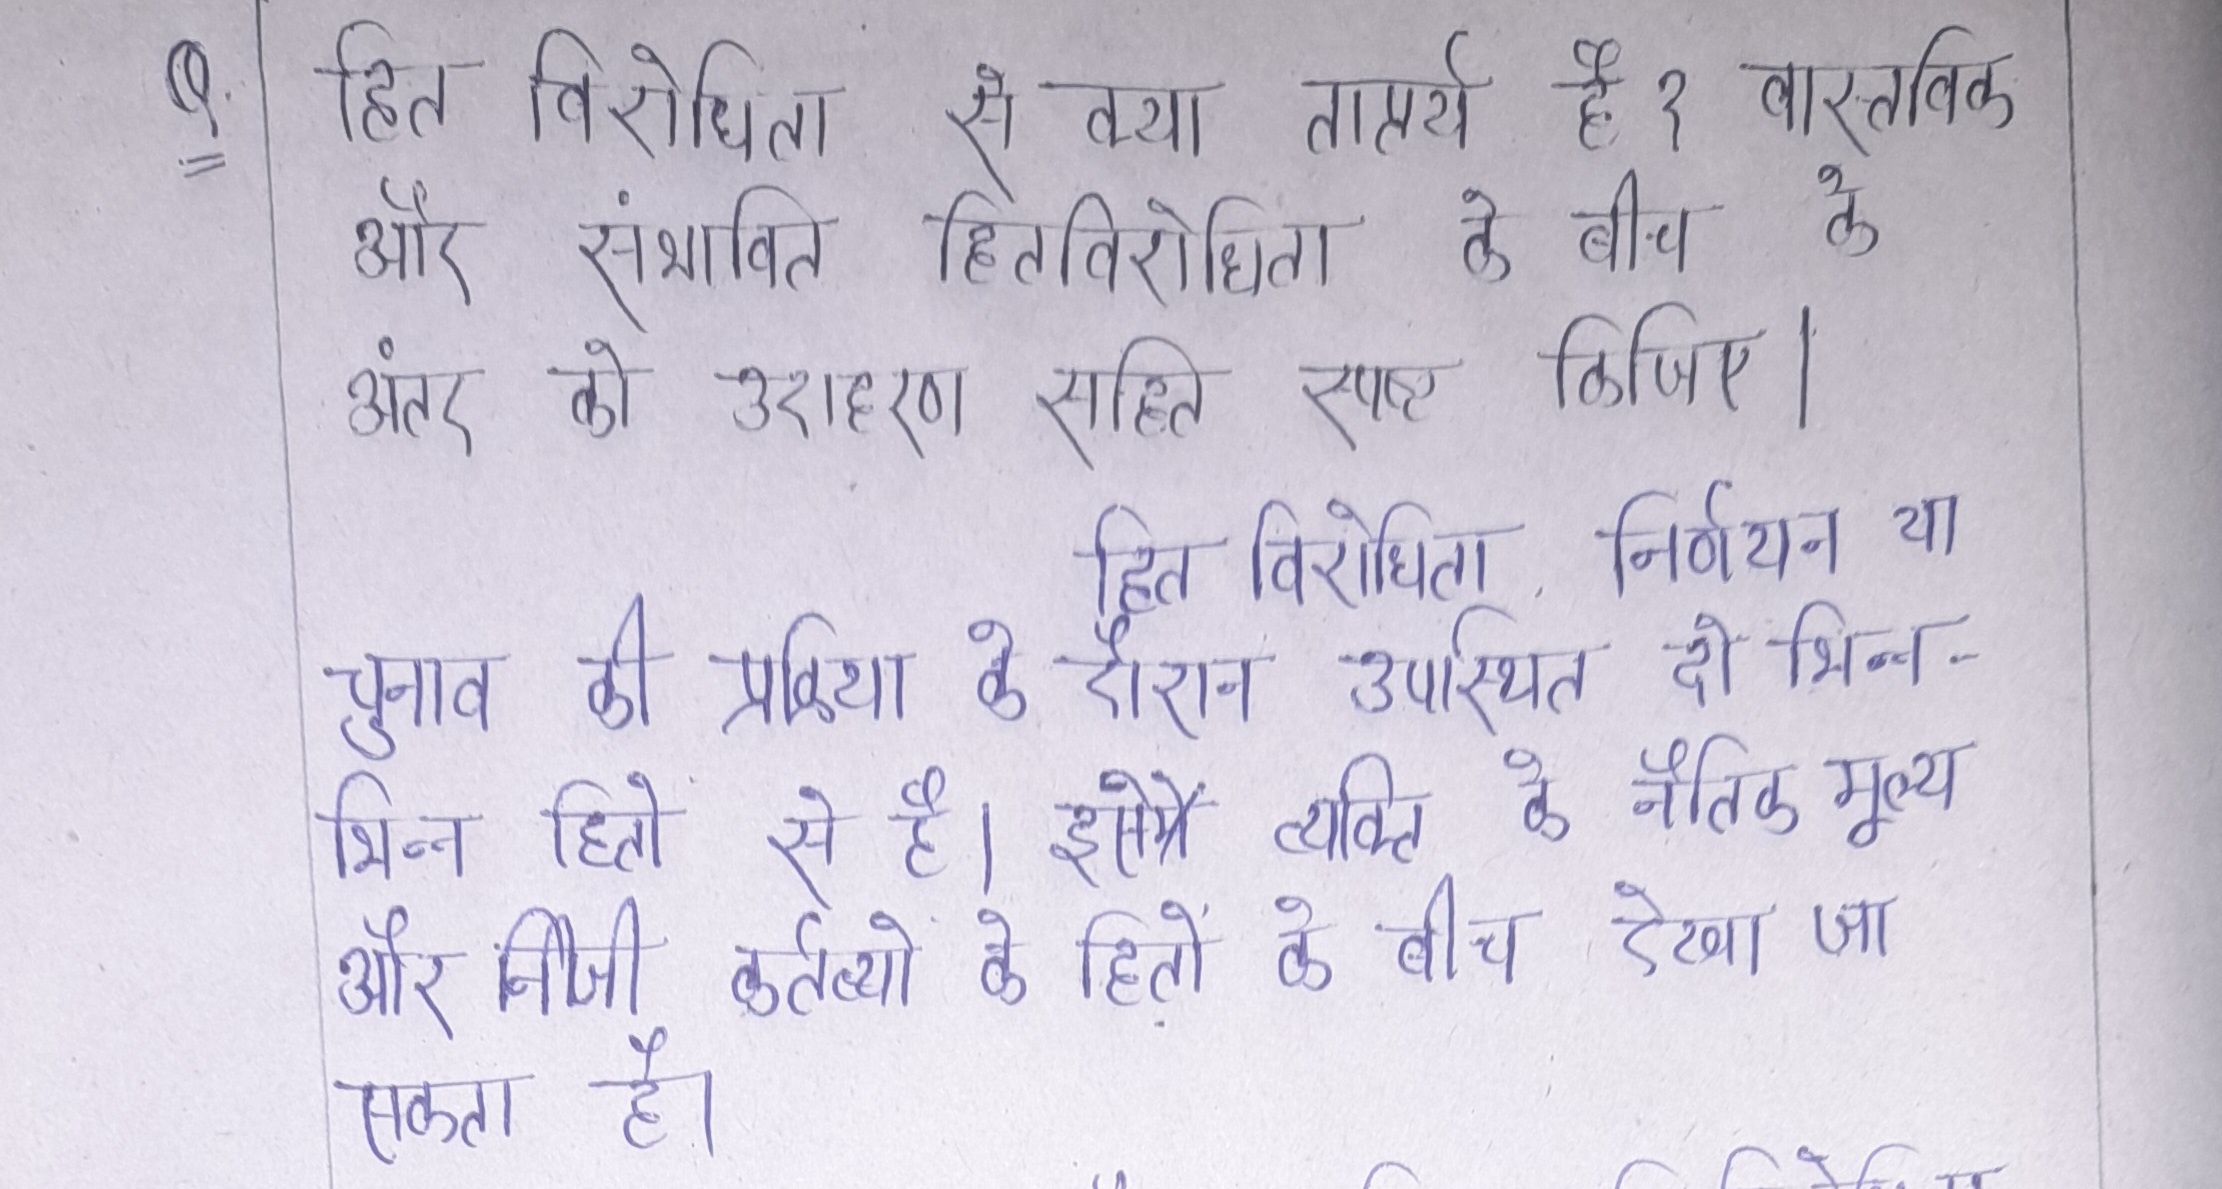 Q. हित विरोधिता से क्या तात्पर्य है? वास्तविक
और संभावित हितविरोधिता के बीच के
अंतर को उदाहरण सहित स्पष्ट किजिए।
हित विरोधिता, निर्णयन या
चुनाव की प्रक्रिया के दौरान उपस्थित दो भिन्न-
भिन्न हितों से है। इसमें व्यक्ति के नैतिक मूल्य
और निजी कर्तव्यों के हितों के बीच देखा जा
सकता है।